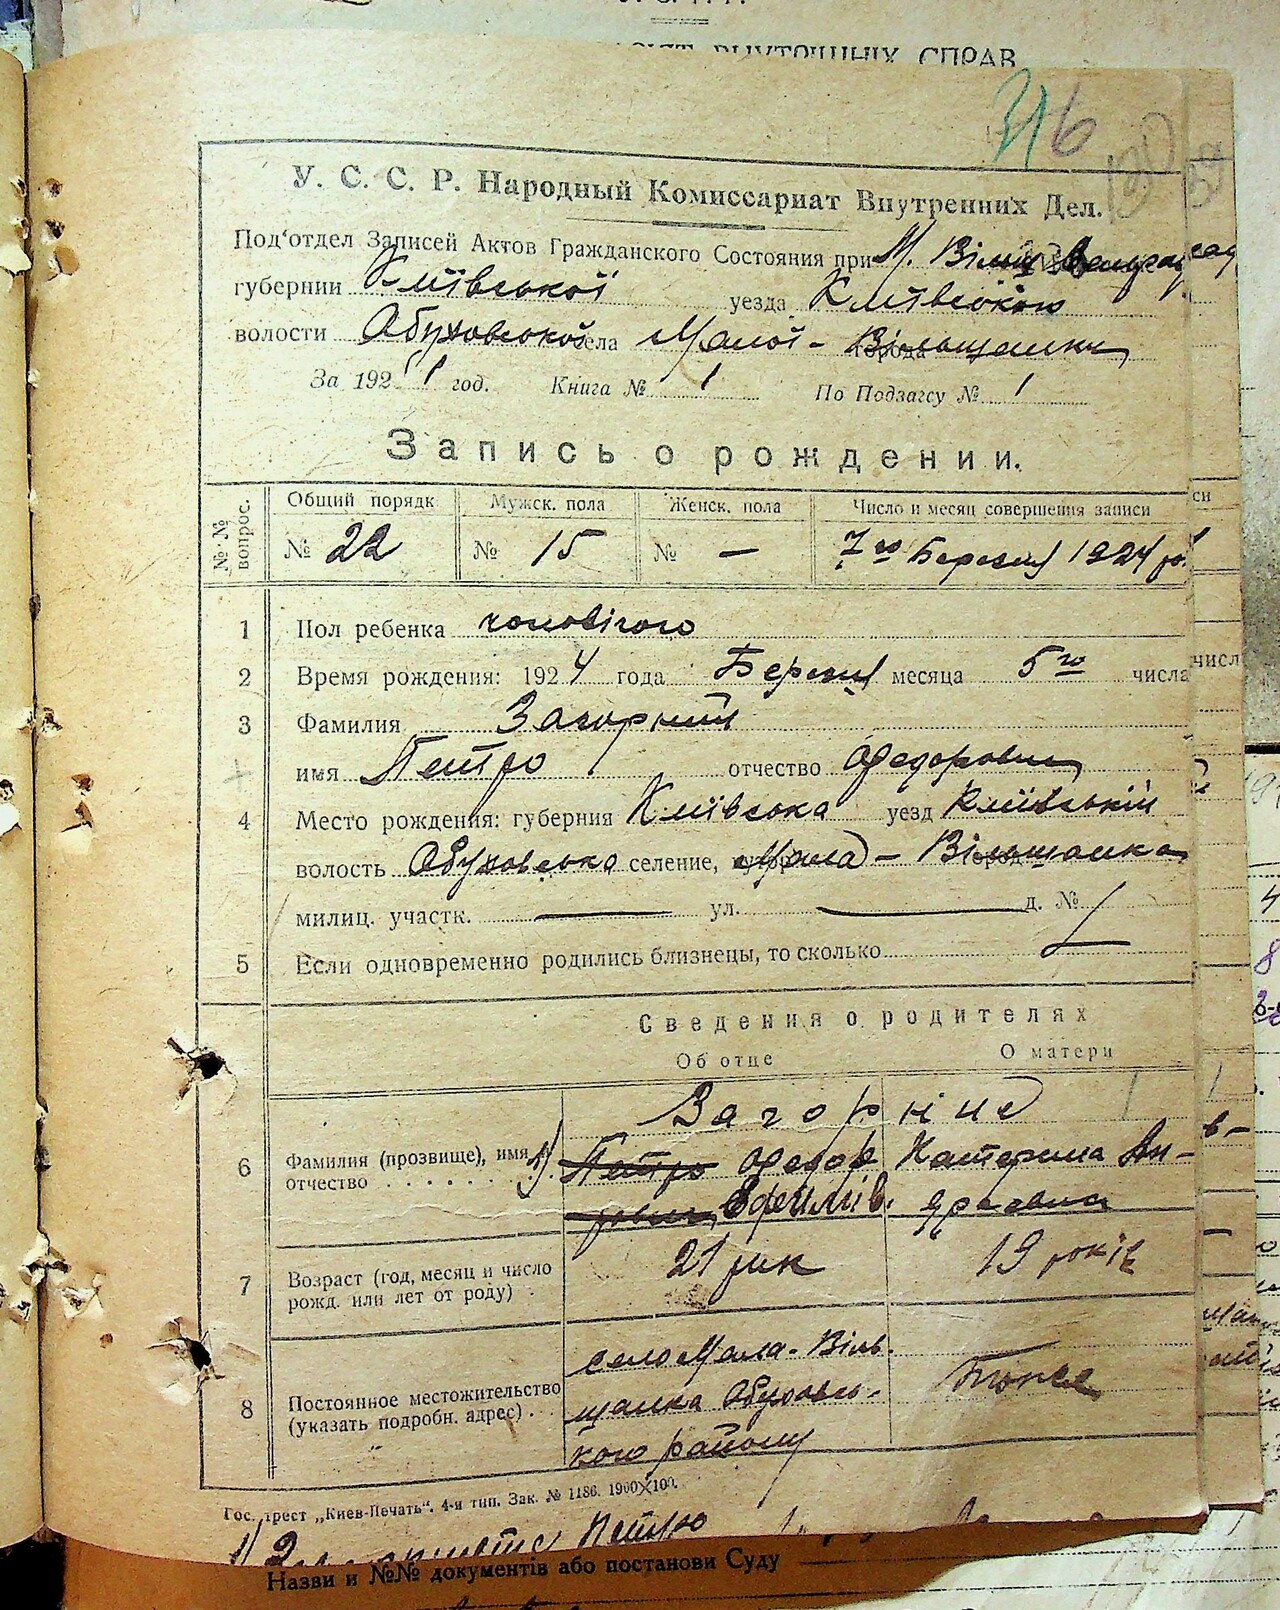 ВНУТРІШНІХ СПРАВ
316
120
У. С. С. Р. Народный Комиссариат Внутренних Дел.
Под'отдел Записей Актов Гражданского Состояния при М.
губернии Київської уезда Київського
волости Обуховської села Малої - города Вільшанки
За 192 год. Книга № 1 По Подзагсу № 1
Запись о рождении.
№ № вопрос. Общий порядк Мужск. пола Женск. пола Число и месяц совершения записи
№ 22 № 15 № — 7го Березня 1924 р.
1 Пол ребенка чоловічого
2 Время рождения: 1924 года Березня месяца 5го числа
3 Фамилия Загорний
имя Петро отчество Федорович
4 Место рождения: губерния Київська уезд Київський
волость Обуховська селение, Мала - Вільшанка
милиц. участк. — ул. — д. №
5 Если одновременно родились близнецы, то сколько —
Сведения о родителях
Об отце О матери
Загорні
6 Фамилия (прозвище), имя Петро Федор Катерина Ан-
отчество
7 Возраст (год, месяц и число 21 рик 19 років
рожд. или лет от роду)
село Мала-Віль-
8 Постоянное местожительство шанка Обуховсь-
(указать подробн. адрес)
кого району
Гос. трест „Киев-Печать". 4-я тип. Зак. № 1186. 1900X100.
Петро
Назви и №№ документів або постанови Суду